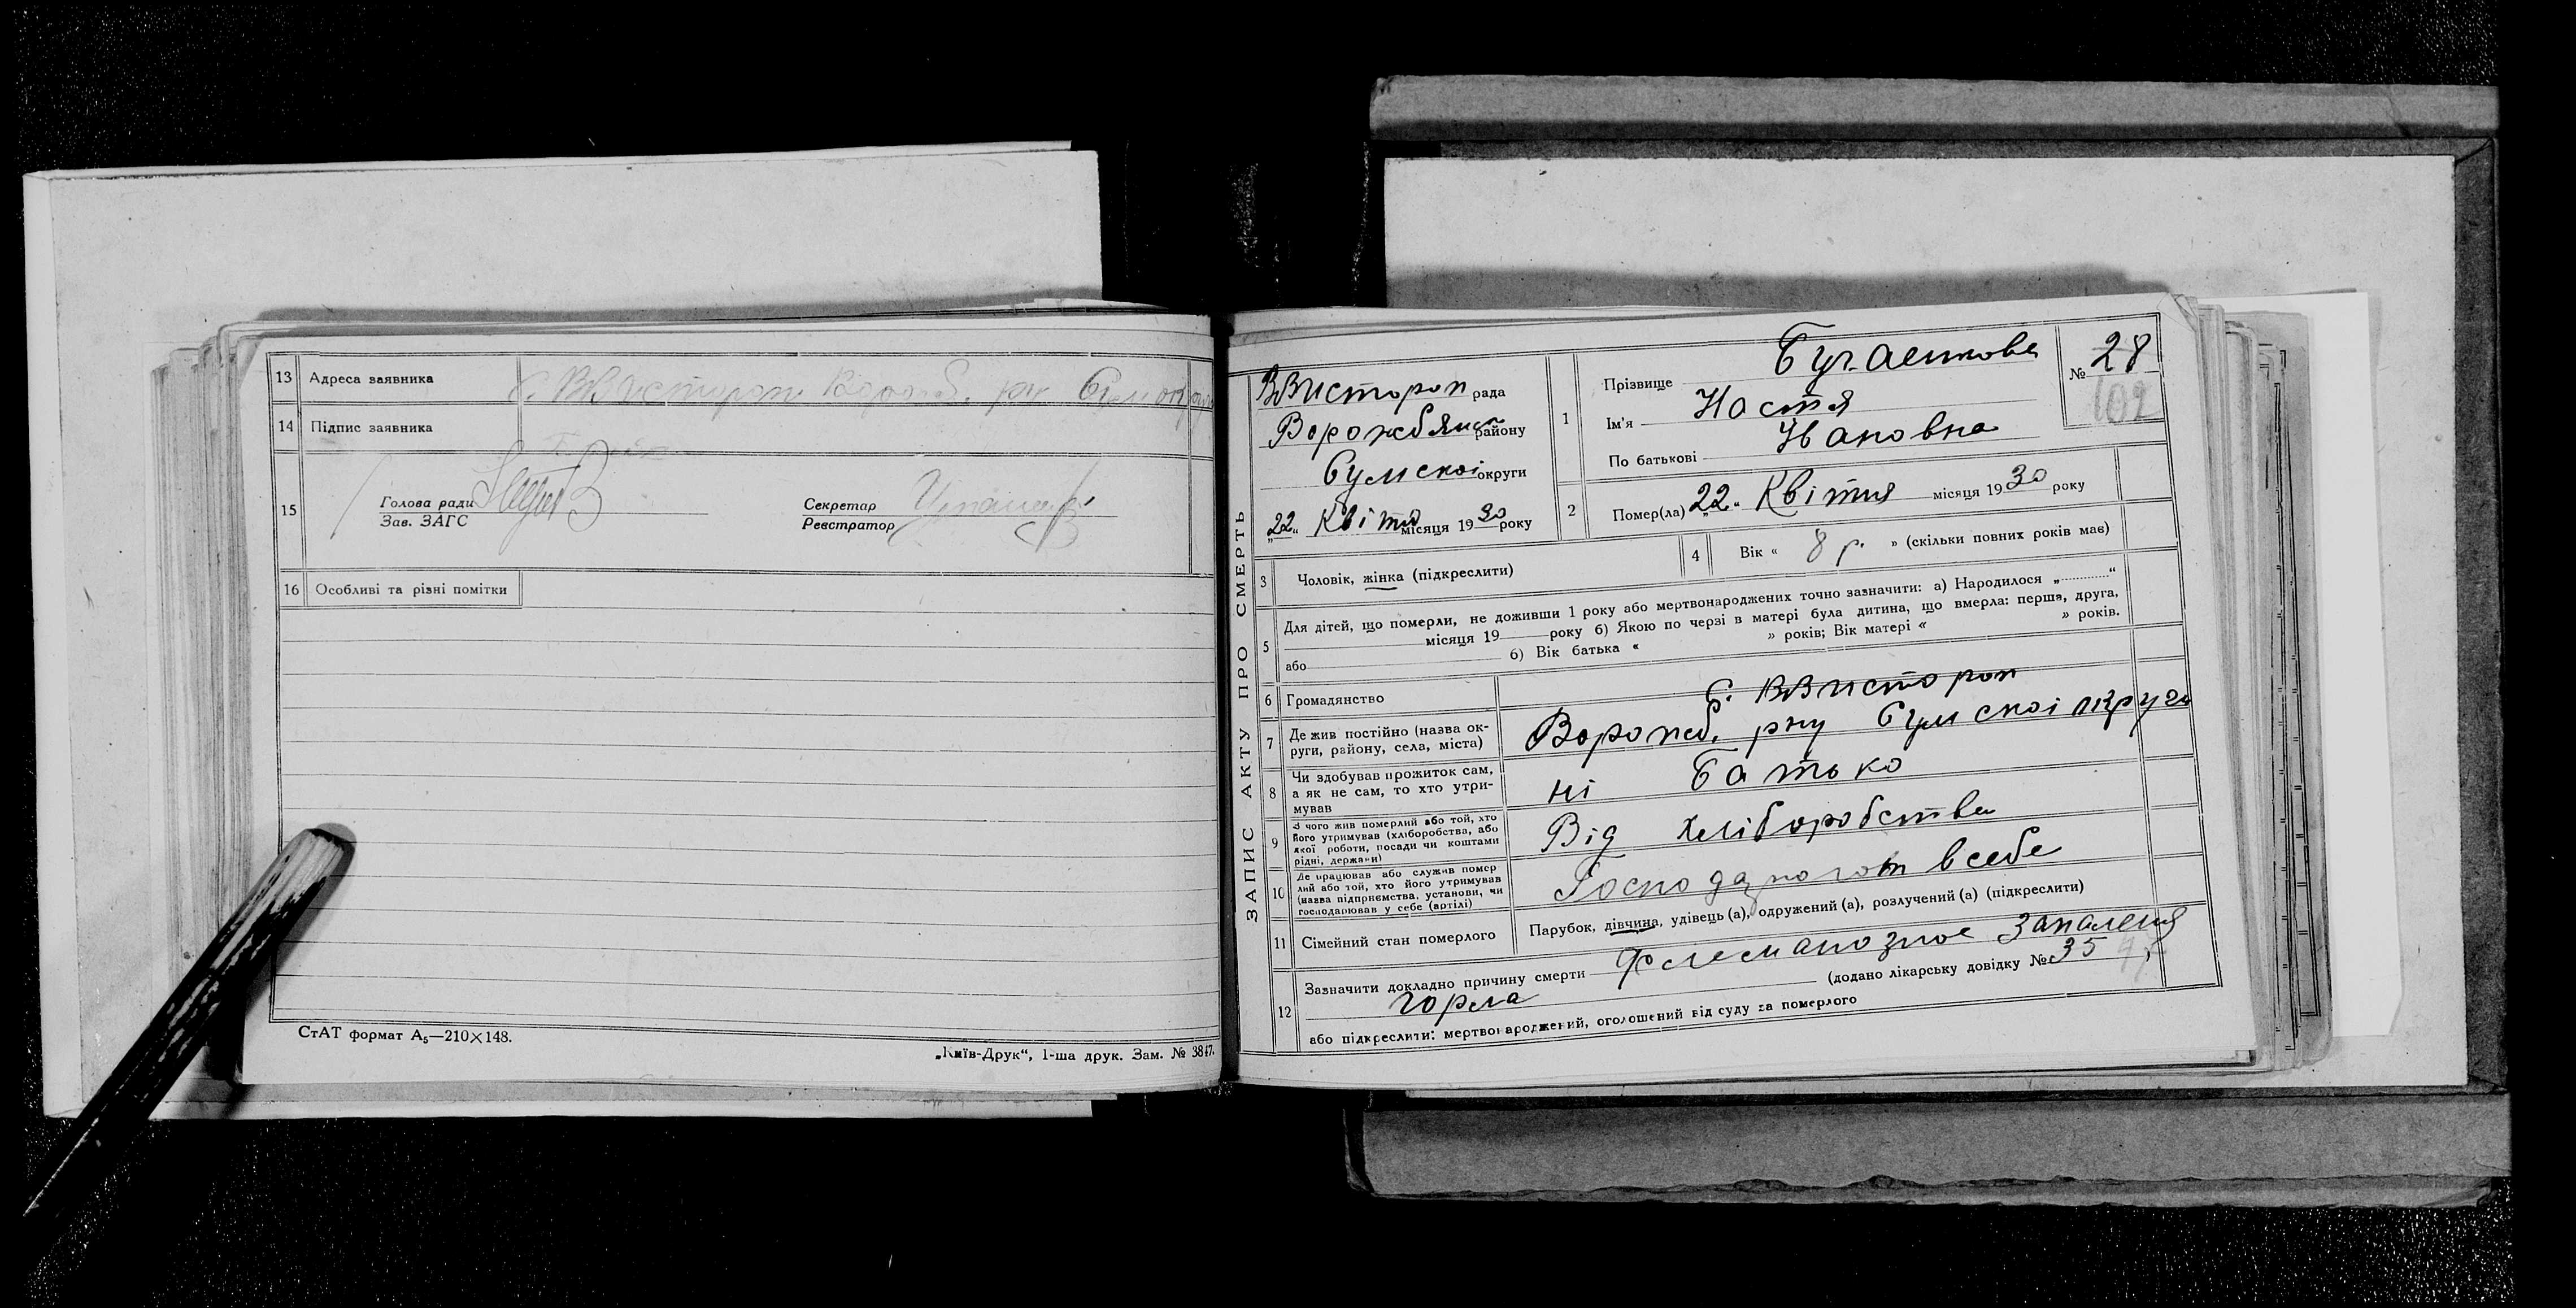 13 Адреса заявника с. ВВистороп
14 Підпис заявника
15 Голова ради
Зав. ЗАГС
Секретар
Реєстратор
16 Особливі та різні помітки
СтАТ формат А₅—210×148.
„Київ-Друк“, 1-ша друк. Зам. № 3847.
ЗАПИС АКТУ ПРО СМЕРТЬ
ВВистороп рада
Ворожбянск району
Сумскоі округи
„22“ Квітня місяця 1930 року
1 Прізвище
Ім'я Настя
По батькові Івановна
№ 28
102
2 Помер(ла) „22“ Квітня місяця 1930 року
3 Чоловік, жінка (підкреслити)
4 Вік « 8 р. » (скільки повних років має)
5 Для дітей, що померли, не доживши 1 року або мертвонароджених точно зазначити: а) Народилося „ “
місяця 19 року б) Якою по черзі в матері була дитина, що вмерла: перша, друга,
або б) Вік батька « » років; Вік матері « » років.
6 Громадянство
с. ВВистороп
7 Де жив постійно (назва ок-
руги, району, села, міста)
Ворожб. рну Сумскоі округи
8 Чи здобував прожиток сам,
а як не сам, то хто утри-
мував
ні Батько
9 З чого жив померлий або той, хто
його утримував (хліборобства, або
якої роботи, посади чи коштами
рідні, держави)
Від хліборобства
10 Де працював або служив помер
лий або той, хто його утримував
(назва підприємства, установи, чи
господарював у себе (артілі)
в себе
11 Сімейний стан померлого
Парубок, дівчина, удівець (а), одружений (а), розлучений (а) (підкреслити)
12 Зазначити докладно причину смерти Флегманозное запаленя
горла (додано лікарську довідку № 35
або підкреслити: мертвонароджений, оголошений від суду за померлого